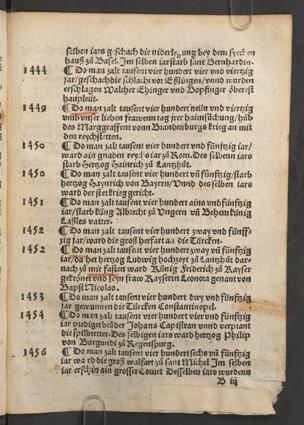 selben iars geschach die niderlegung bey dem syechen
hauß zů Basel. Im selben iar starb sant Bernhardin.
1444 ¶ Do man zalt tausent vier hundert vier vnd viertzig
iar/geschach die schlacht vor Eßlingen/vnnd wurden
erschlagen Walther Ehinger vnd Bopfinger öberest
haupleüt.
1449 ¶ Do man zalt tausent vier hundert neün vnd viertzig
vnd vnser lieben frawenn tag irer haimsůchung/hůb
des Marggraffenn vonn Brandenburgs krieg an mit
den reychstetten.
1450 ¶ Do man zalt tausent vier hundert vnd fünfftzig iar/
ward ain gnaden reych iar zů Rom. Des selbenn iars
starb hertzog Hainrich zů Lantzhůt.
1450 ¶ Do man zalt tausent vier hundert vñ fünfftzig/starb
hertzog Haynrich von Bayern/Vnnd des selben iars
ward der stet krieg gericht.
1451 ¶ Do man zalt tausent vier hundert ains vnd fünfftzig
iar/starb küng Albrecht zů Ungern vñ Behem künig
Laßles vatter.
1452 ¶ Do man zalt tausent vier hundert zway vnd fünff-
tzig iar/ward die groß herfart an die Türcken.
1452 ¶ Do man zalt tausent vier hundert zway vñ fünfftzig
iar/da het hertzog Ludwig hochzeyt zů Lantzhůt dar-
nach zů mit fasten ward Künig Friderich zů Kayser
gekrönet vnd seyn fraw Kayserin Leonora genant von
Bapst Nicolao.
1453 ¶ Do man zalt tausent vier hundert drey vnd fünfftzig
iar gewunnen die Türcken Constantinopel.
1454 ¶ Do man zalt tausent vier hundert vier vnd fünfftzig
iar prediget brůder Johans Capistran vnnd verprant
die spilbretter. Des selbigen iars ward hertzog Philip
von Burgundi zů Regenspurg.
1456 ¶ Do man zalt tausent vier hundert sechs vñ fünfftzig
iar ward die groß walfart zů sant Michel Im selben
iar erschin ain grosser Comet Desselben iars wurdenn
B iij